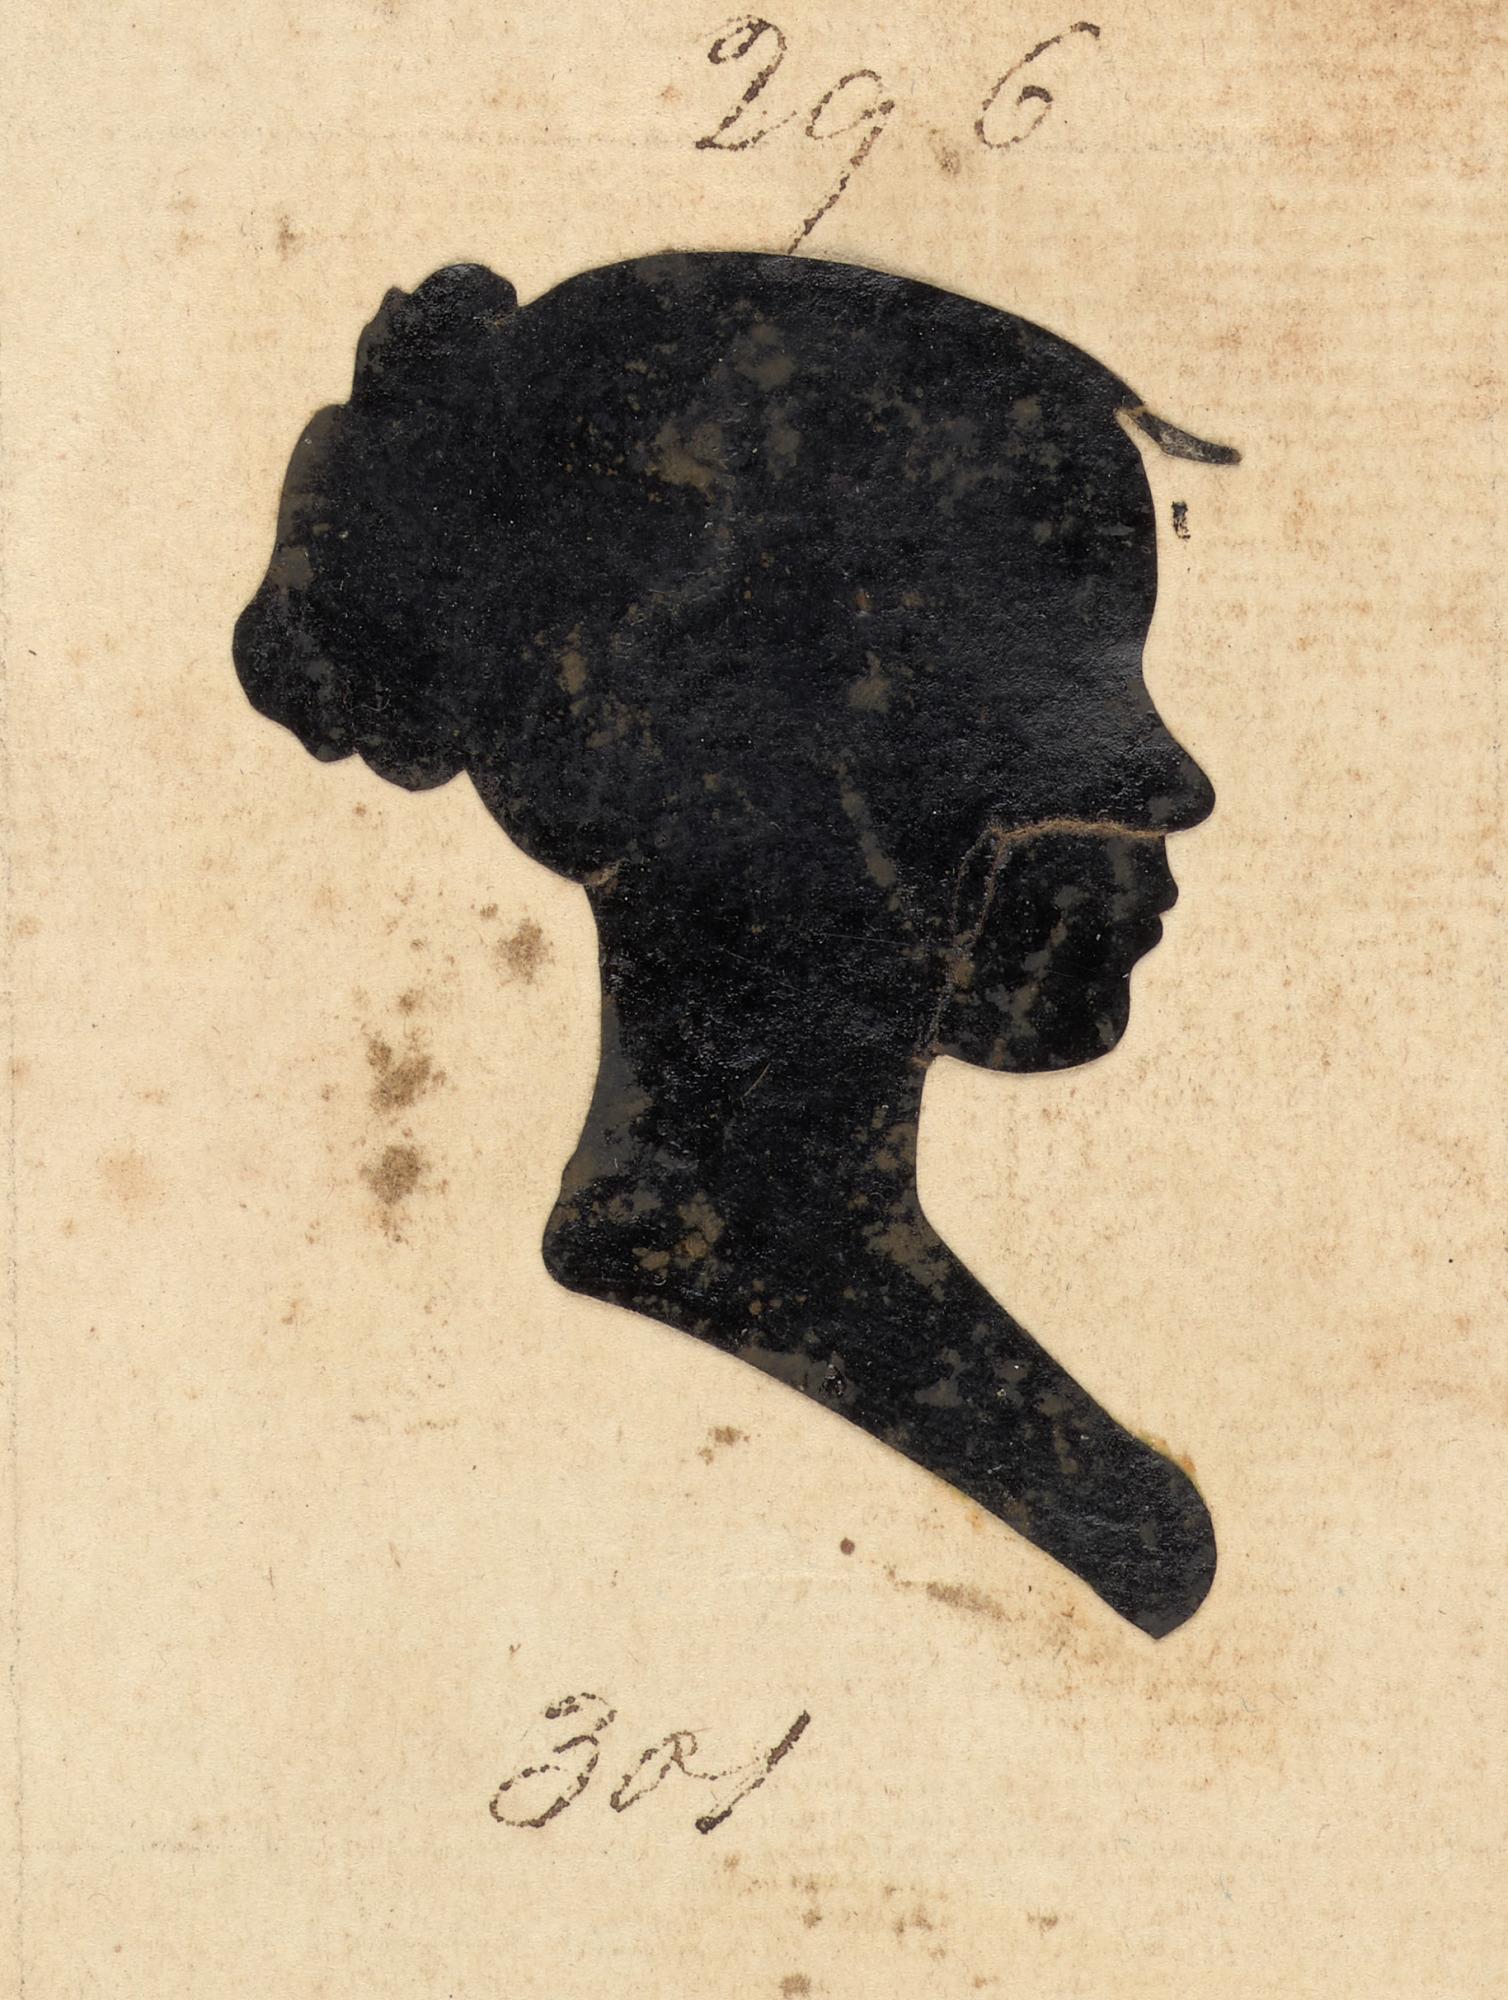 296
301